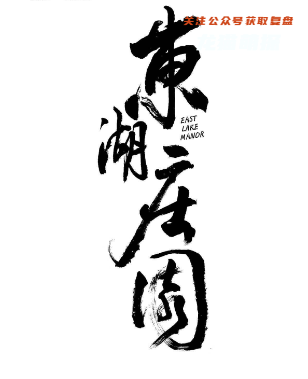 关注公众号获取复盘
東湖庄園
EAST
LAKE
MANOR